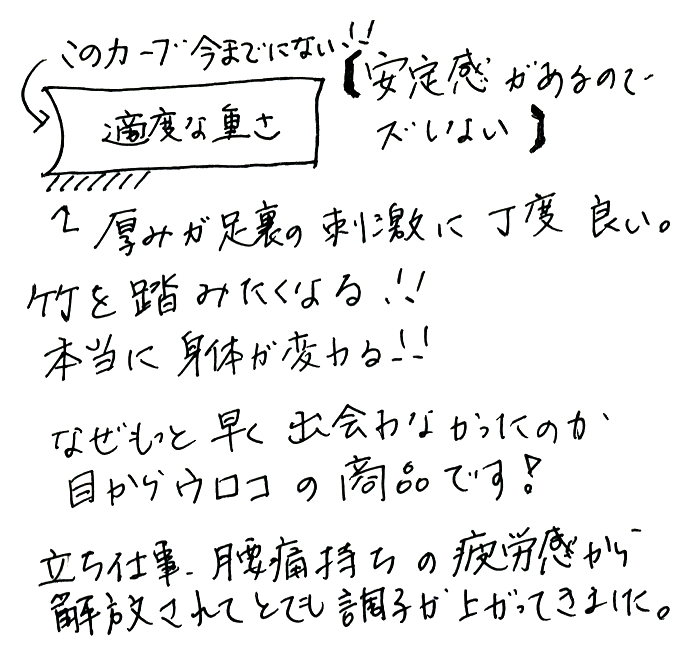 このカーブ今までにない!!
適度な重さ
【安定感があるので
ズレない】
厚みが足裏の刺激に丁度良い。
竹を踏みたくなる!!
本当に身体が変わる!!
なぜもっと早く出会わなかったのか
目からウロコの商品です!
立ち仕事、腰痛持ちの疲労感から
解放されてとても調子が上がってきました。